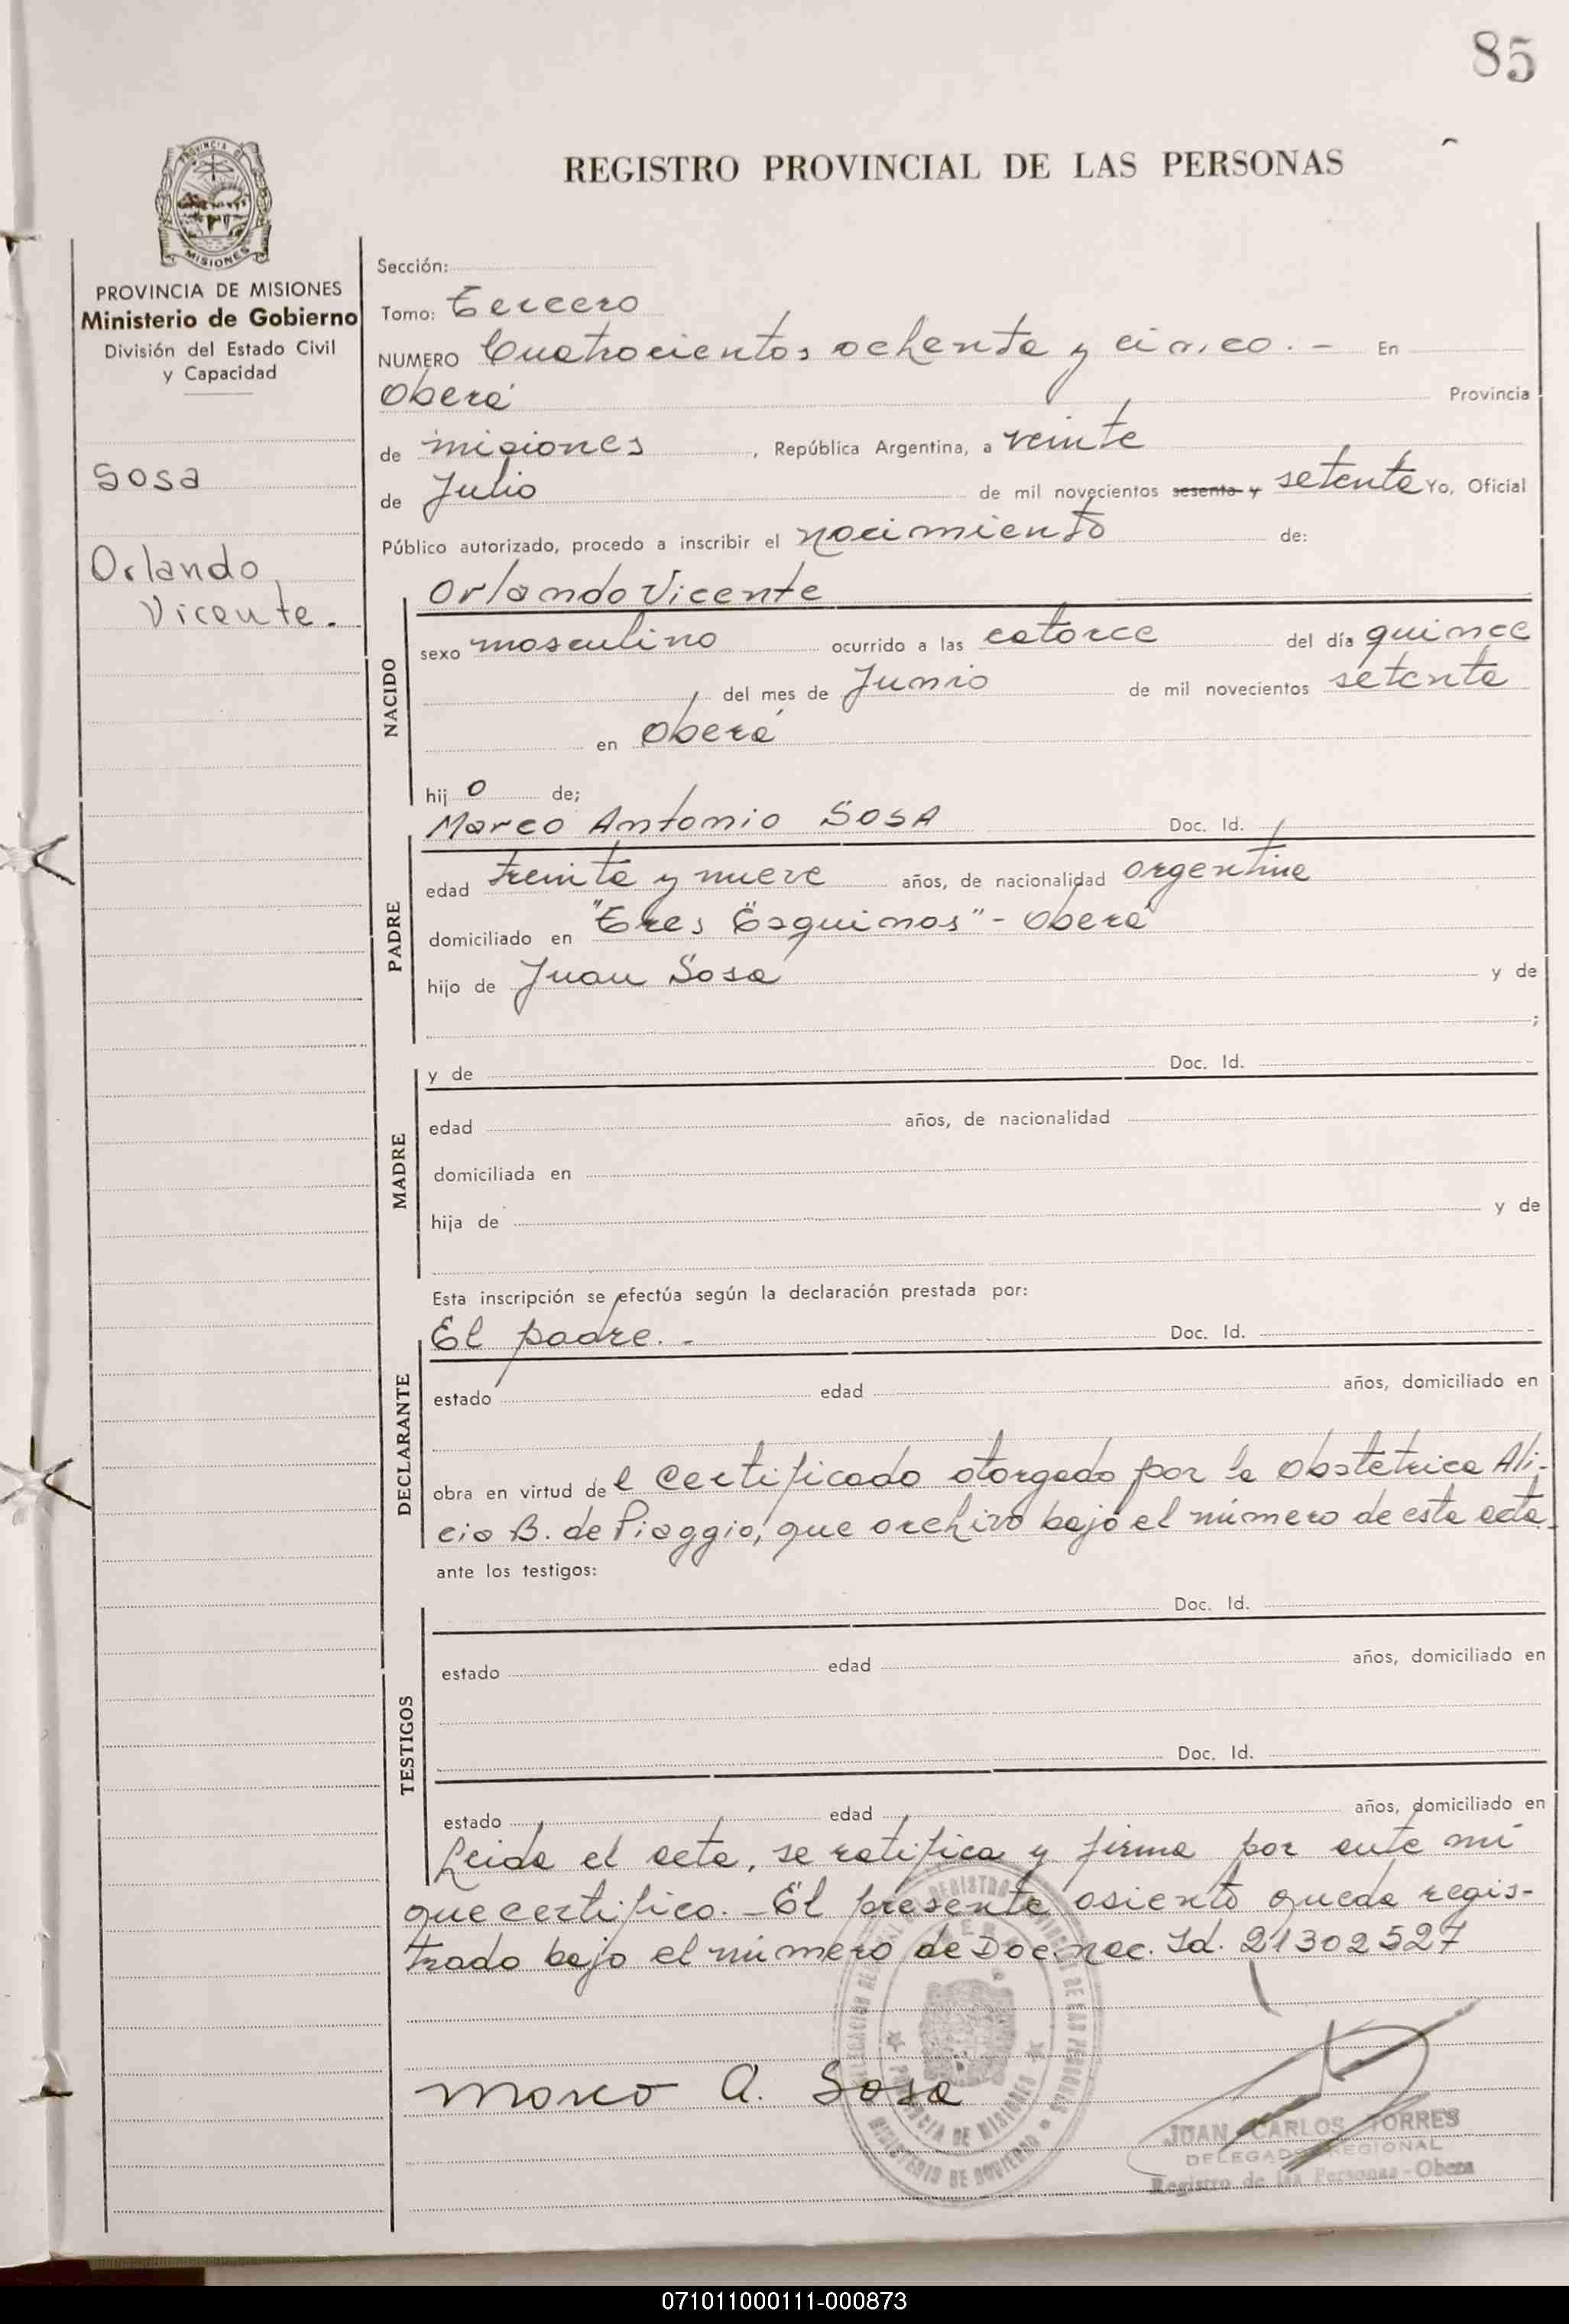 85
REGISTRO PROVINCIAL DE LAS PERSONAS
PROVINCIA DE
MISIONES
PROVINCIA DE MISIONES
Ministerio de Gobierno
División del Estado Civil
y Capacidad
Sosa
Orlando
Vicente.
Sección:
Tomo: Tercero
NUMERO Cuatrocientos ochenta y cinco. - En
Oberá Provincia
de misiones, República Argentina, a veinte
de Julio de mil novecientos sesenta y setenta Yo, Oficial
Público autorizado, procedo a inscribir el nacimiento de:
NACIDO
Orlando Vicente
sexo masculino ocurrido a las catorce del día quince
del mes de Junio de mil novecientos setenta
en Oberá
hij o de;
PADRE
Marco Antonio SOSA Doc. Id.
edad treinta y nueve años, de nacionalidad argentina
domiciliado en "Tres Esquinas" - Oberá
hijo de Juan Sosa y de
;
MADRE
y de Doc. Id.
edad años, de nacionalidad
domiciliada en
hija de y de
Esta inscripción se efectúa según la declaración prestada por:
DECLARANTE
El padre. - Doc. Id.
estado edad años, domiciliado en
obra en virtud de l Certificado otorgado por la Obstetrica Ali-
cia B. de Piaggio, que archivo bajo el número de esta acta.
ante los testigos:
TESTIGOS
Doc. Id.
estado edad años, domiciliado en
Doc. Id.
estado edad años, domiciliado en
Leida el acta, se ratifica y firma por ante mi
que certifico. - El presente asiento queda regis-
trado bajo el número de Doc. nac. Id. 21302527
Marco A. Sosa
PROVINCIA DE MISIONES
MINISTERIO DE GOBIERNO
JUAN CARLOS TORRES
DELEGADO REGIONAL
Registro de las Personas - Obera
071011000111-000873